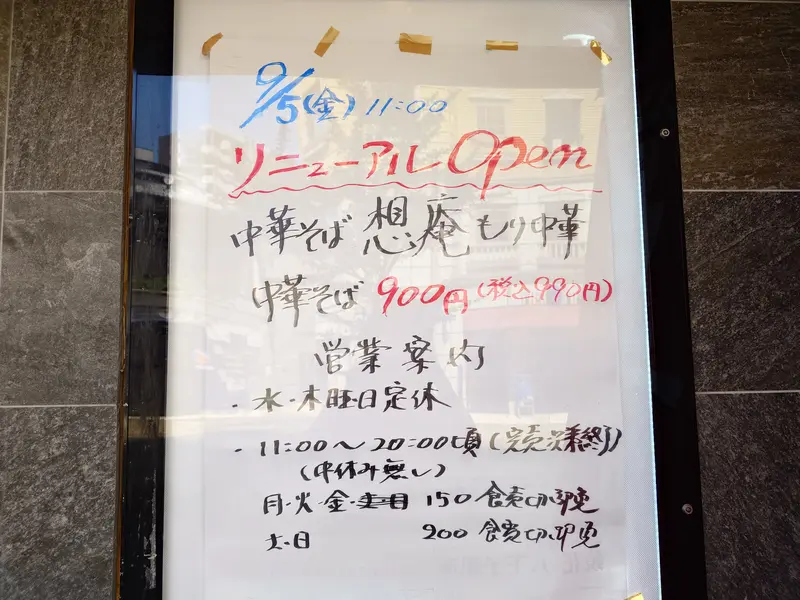 9/5(金) 11:00
リニューアル Open
中華そば 想庵 もり中華
中華そば 900円(税込990円)
営業案内
・水・木曜日定休
・11:00〜20:00頃(完売次第終了)
(中休み無し)
月・火・金・ 150食売切御免
土・日 200食売切御免